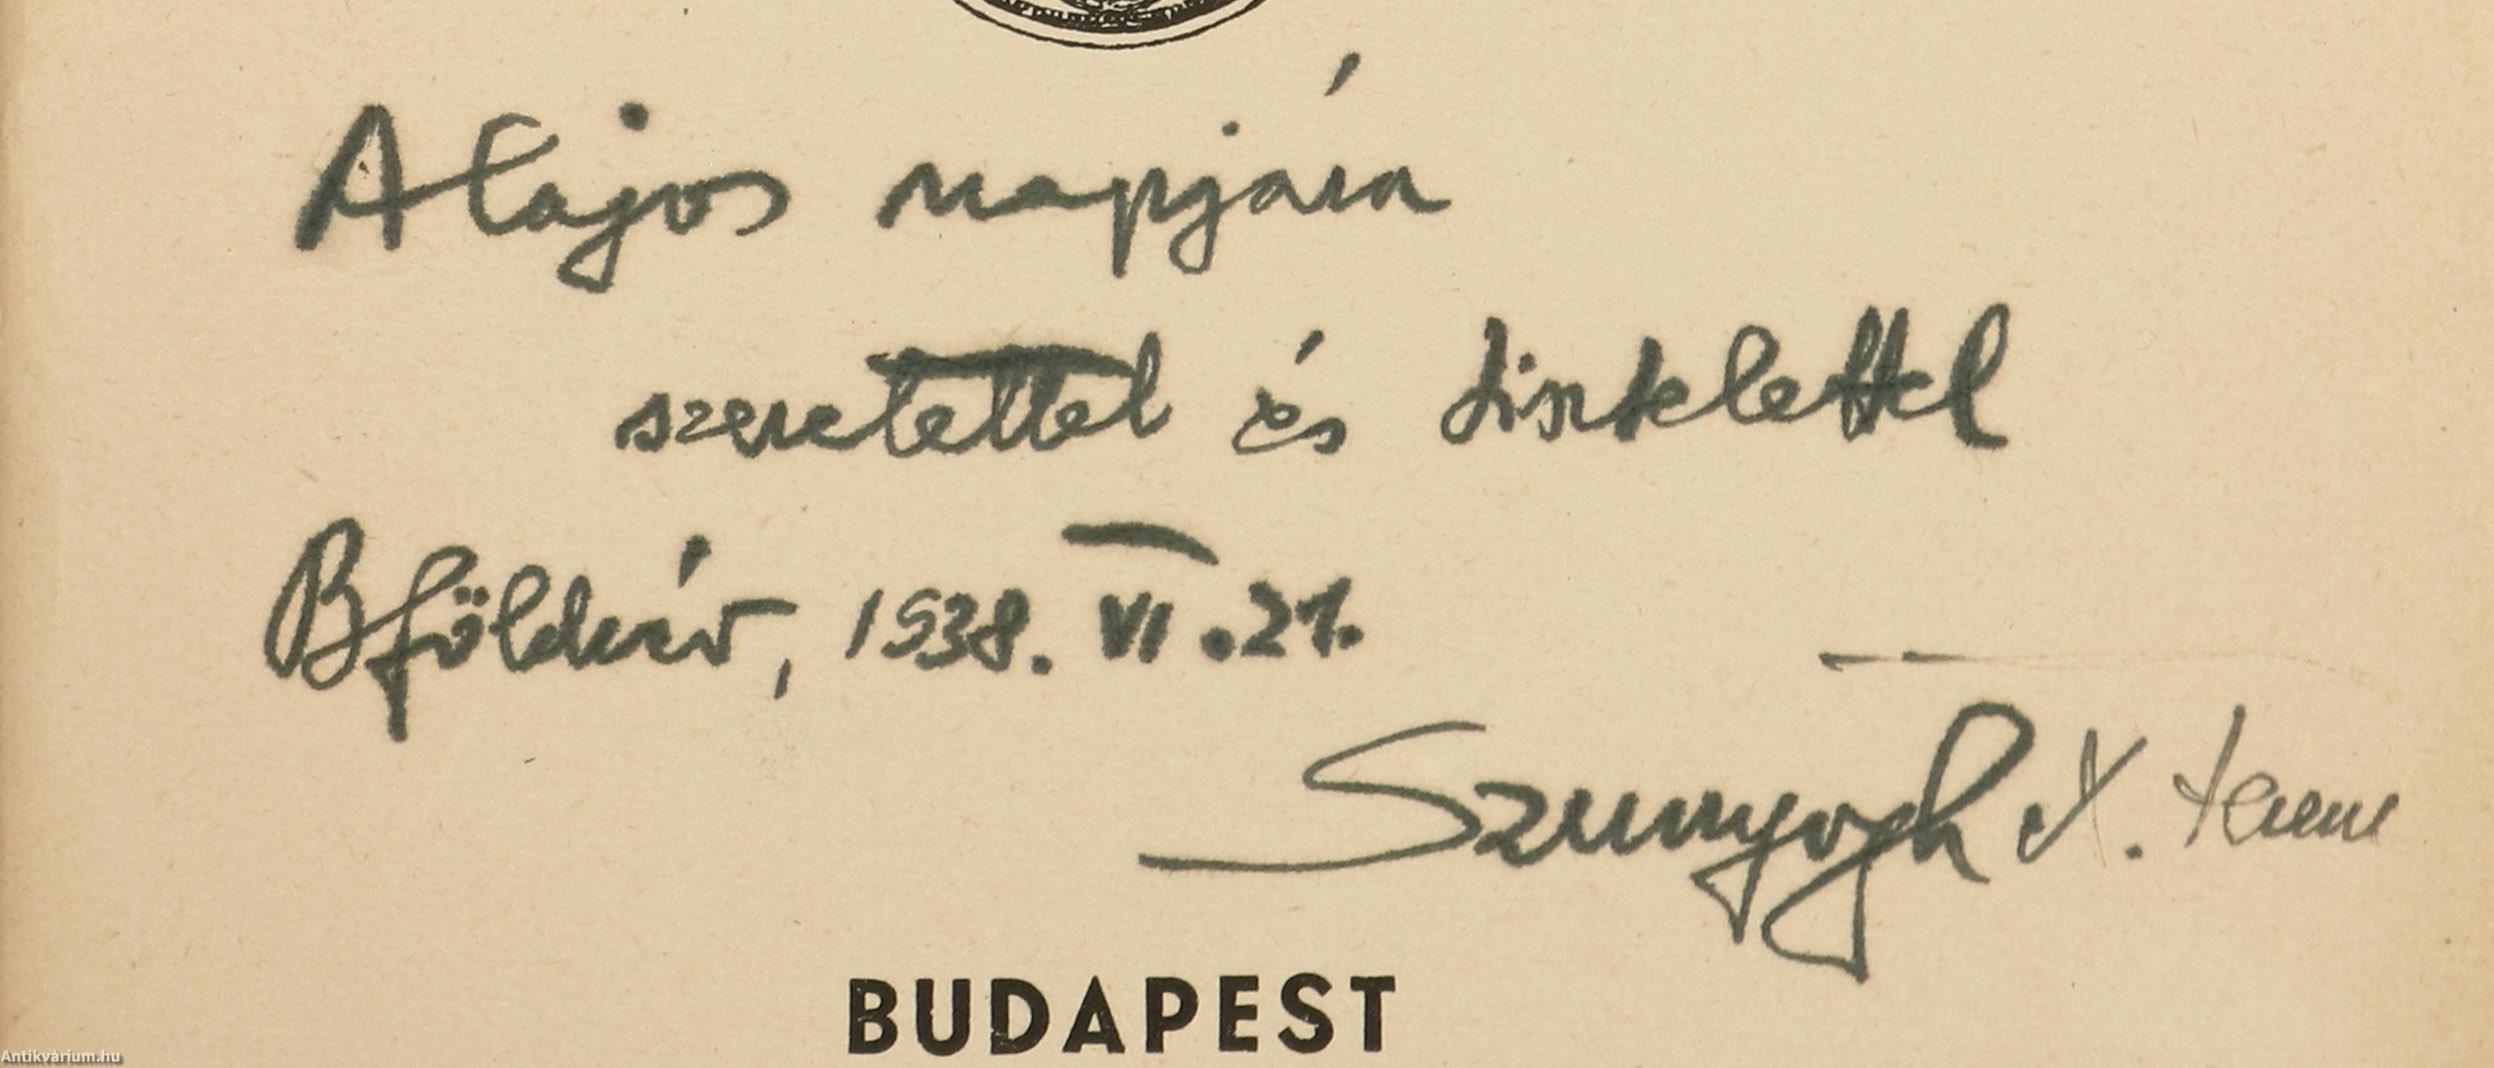 Alajos napjára
szeretettel és tisztelettel
Bföldvár, 1938. VI. 21.
Szunyogh X. Ferenc
BUDAPEST
Antikvárium.hu